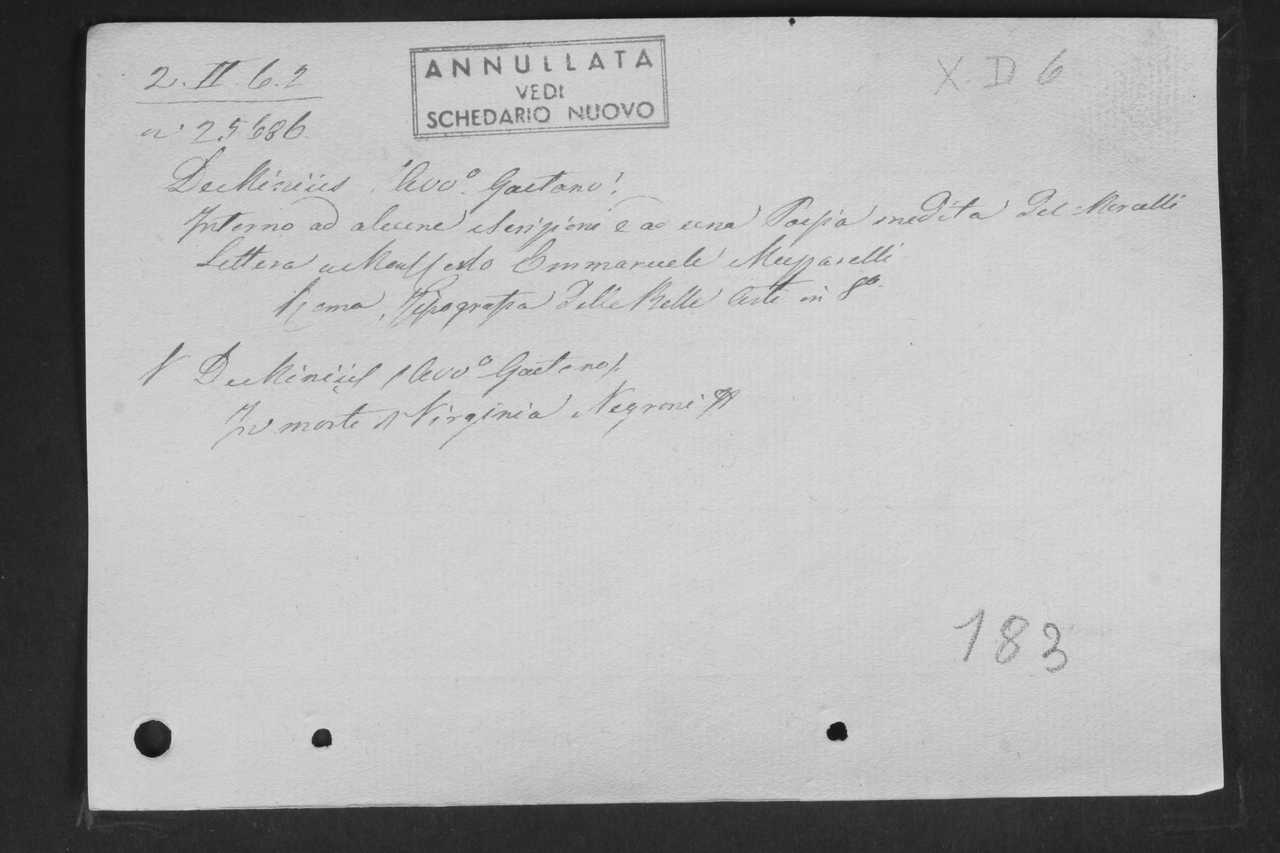 2. II. 6. 2
n° 25686
ANNULLATA
VEDI
SCHEDARIO NUOVO
X D 6
De Minicis (Avv.o Gaetano).
Intorno ad alcune iscrizioni e ad una Poesia inedita del Morcelli
Lettera a Monsg. Emmanuele Muzzarelli
Roma, Tipografia delle Belle Arti in 8o.
De Minicis (Avv.o Gaetano).
In morte di Virginia Negroni
183